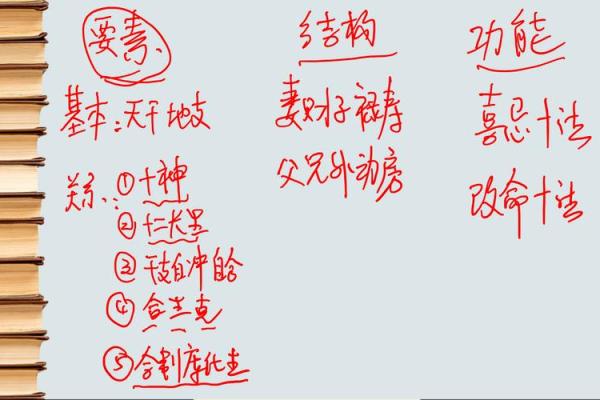 要素
基本：天干地支
关系：①十神
②十二长生
③干支自冲自合
④合生克
⑤合制库化生
结构
妻财子禄寿
父兄外动房
功能
喜忌十法
改命十法